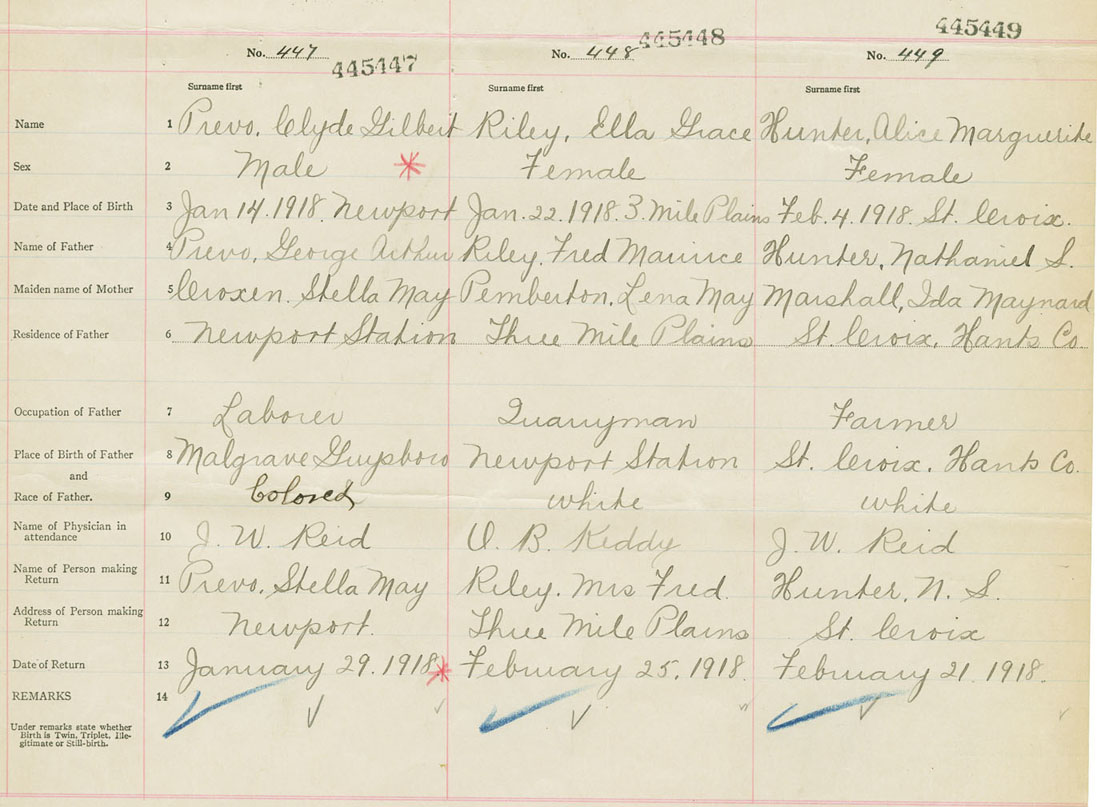 No. 447 No. 448 445448 No. 449 445449
445447
Surname first Surname first Surname first
Name 1 Prevo, Clyde Gilbert Riley, Ella Grace Hunter, Alice Marguerite
Sex 2 Male * Female Female
Date and Place of Birth 3 Jan 14. 1918. Newport Jan. 22. 1918. 3. Mile Plains Feb. 4. 1918. St. Croix.
Name of Father 4 Prevo, George Arthur Riley. Fred Maurice Hunter, Nathaniel S.
Maiden name of Mother 5 Croxen. Stella May Pemberton, Lena May Marshall, Ida Maynard
Residence of Father 6 Newport Station Three Mile Plains St. Croix, Hants Co.
Occupation of Father 7 Laborer Quarryman Farmer
Place of Birth of Father 8 Malgrave Guysboro Newport Station St. Croix. Hants Co.
and
Race of Father. 9 Colored white white
Name of Physician in
attendance 10 J. W. Reid O. B. Keddy J. W. Reid
Name of Person making
Return 11 Prevo, Stella May Riley. Mrs Fred. Hunter. N. S.
Address of Person making
Return 12 Newport. Three Mile Plains St. Croix
Date of Return 13 January 29. 1918. * February 25. 1918. February 21. 1918.
REMARKS 14
Under remarks state whether
Birth is Twin, Triplet, Ille-
gitimate or Still-birth.